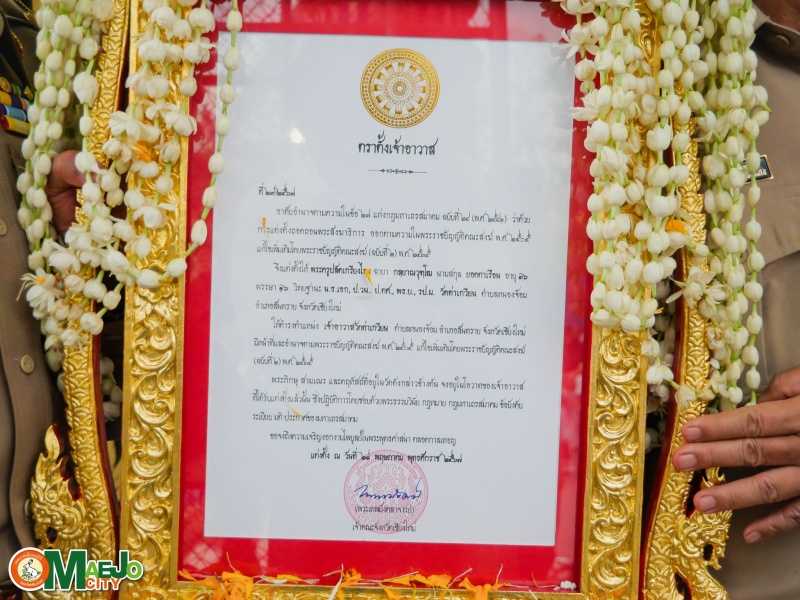 ตราตั้งเจ้าอาวาส
ที่ ๒๗/๒๕๖๗
อาศัยอำนาจตามความในข้อ ๒๗ แห่งกฎมหาเถรสมาคม ฉบับที่ ๒๔ (พ.ศ. ๒๕๔๑) ว่าด้วย
การแต่งตั้งถอดถอนพระสังฆาธิการ ออกตามความในพระราชบัญญัติคณะสงฆ์ พ.ศ. ๒๕๐๕
แก้ไขเพิ่มเติมโดยพระราชบัญญัติคณะสงฆ์ (ฉบับที่ ๒) พ.ศ. ๒๕๓๕
จึงแต่งตั้งให้ พระครูปลัดเกรียงไกร ฉายา นามสกุล ยอดคำเรือน อายุ ๓๖
พรรษา ๑๖ วิทยฐานะ น.ธ.เอก, ป.วน., ป.ทศ., พธ.บ., รป.ม. วัดท่าเกวียน ตำบลหนองจ๊อม
อำเภอสันทราย จังหวัดเชียงใหม่
ให้ดำรงตำแหน่ง เจ้าอาวาสวัดท่าเกวียน ตำบลหนองจ๊อม อำเภอสันทราย จังหวัดเชียงใหม่
มีหน้าที่และอำนาจตามพระราชบัญญัติคณะสงฆ์ พ.ศ. ๒๕๐๕ แก้ไขเพิ่มเติมโดยพระราชบัญญัติคณะสงฆ์
(ฉบับที่ ๒) พ.ศ. ๒๕๓๕
พระภิกษุ สามเณร และคฤหัสถ์ที่อยู่ในวัดดังกล่าวข้างต้น จงอยู่ในโอวาทของเจ้าอาวาส
ที่ได้รับแต่งตั้งแล้วนั้น ซึ่งปฏิบัติการโดยชอบด้วยพระธรรมวินัย กฎหมาย กฎมหาเถรสมาคม ข้อบังคับ
ระเบียบ มติ ประกาศของมหาเถรสมาคม
ขอจงมีความเจริญงอกงามไพบูลย์ในพระพุทธศาสนา ตลอดกาลเทอญ
แต่งตั้ง ณ วันที่ ๒๘ พฤษภาคม พุทธศักราช ๒๕๖๗
(พระเทพมังคลาจารย์)
เจ้าคณะจังหวัดเชียงใหม่
OMAEJO
CITY